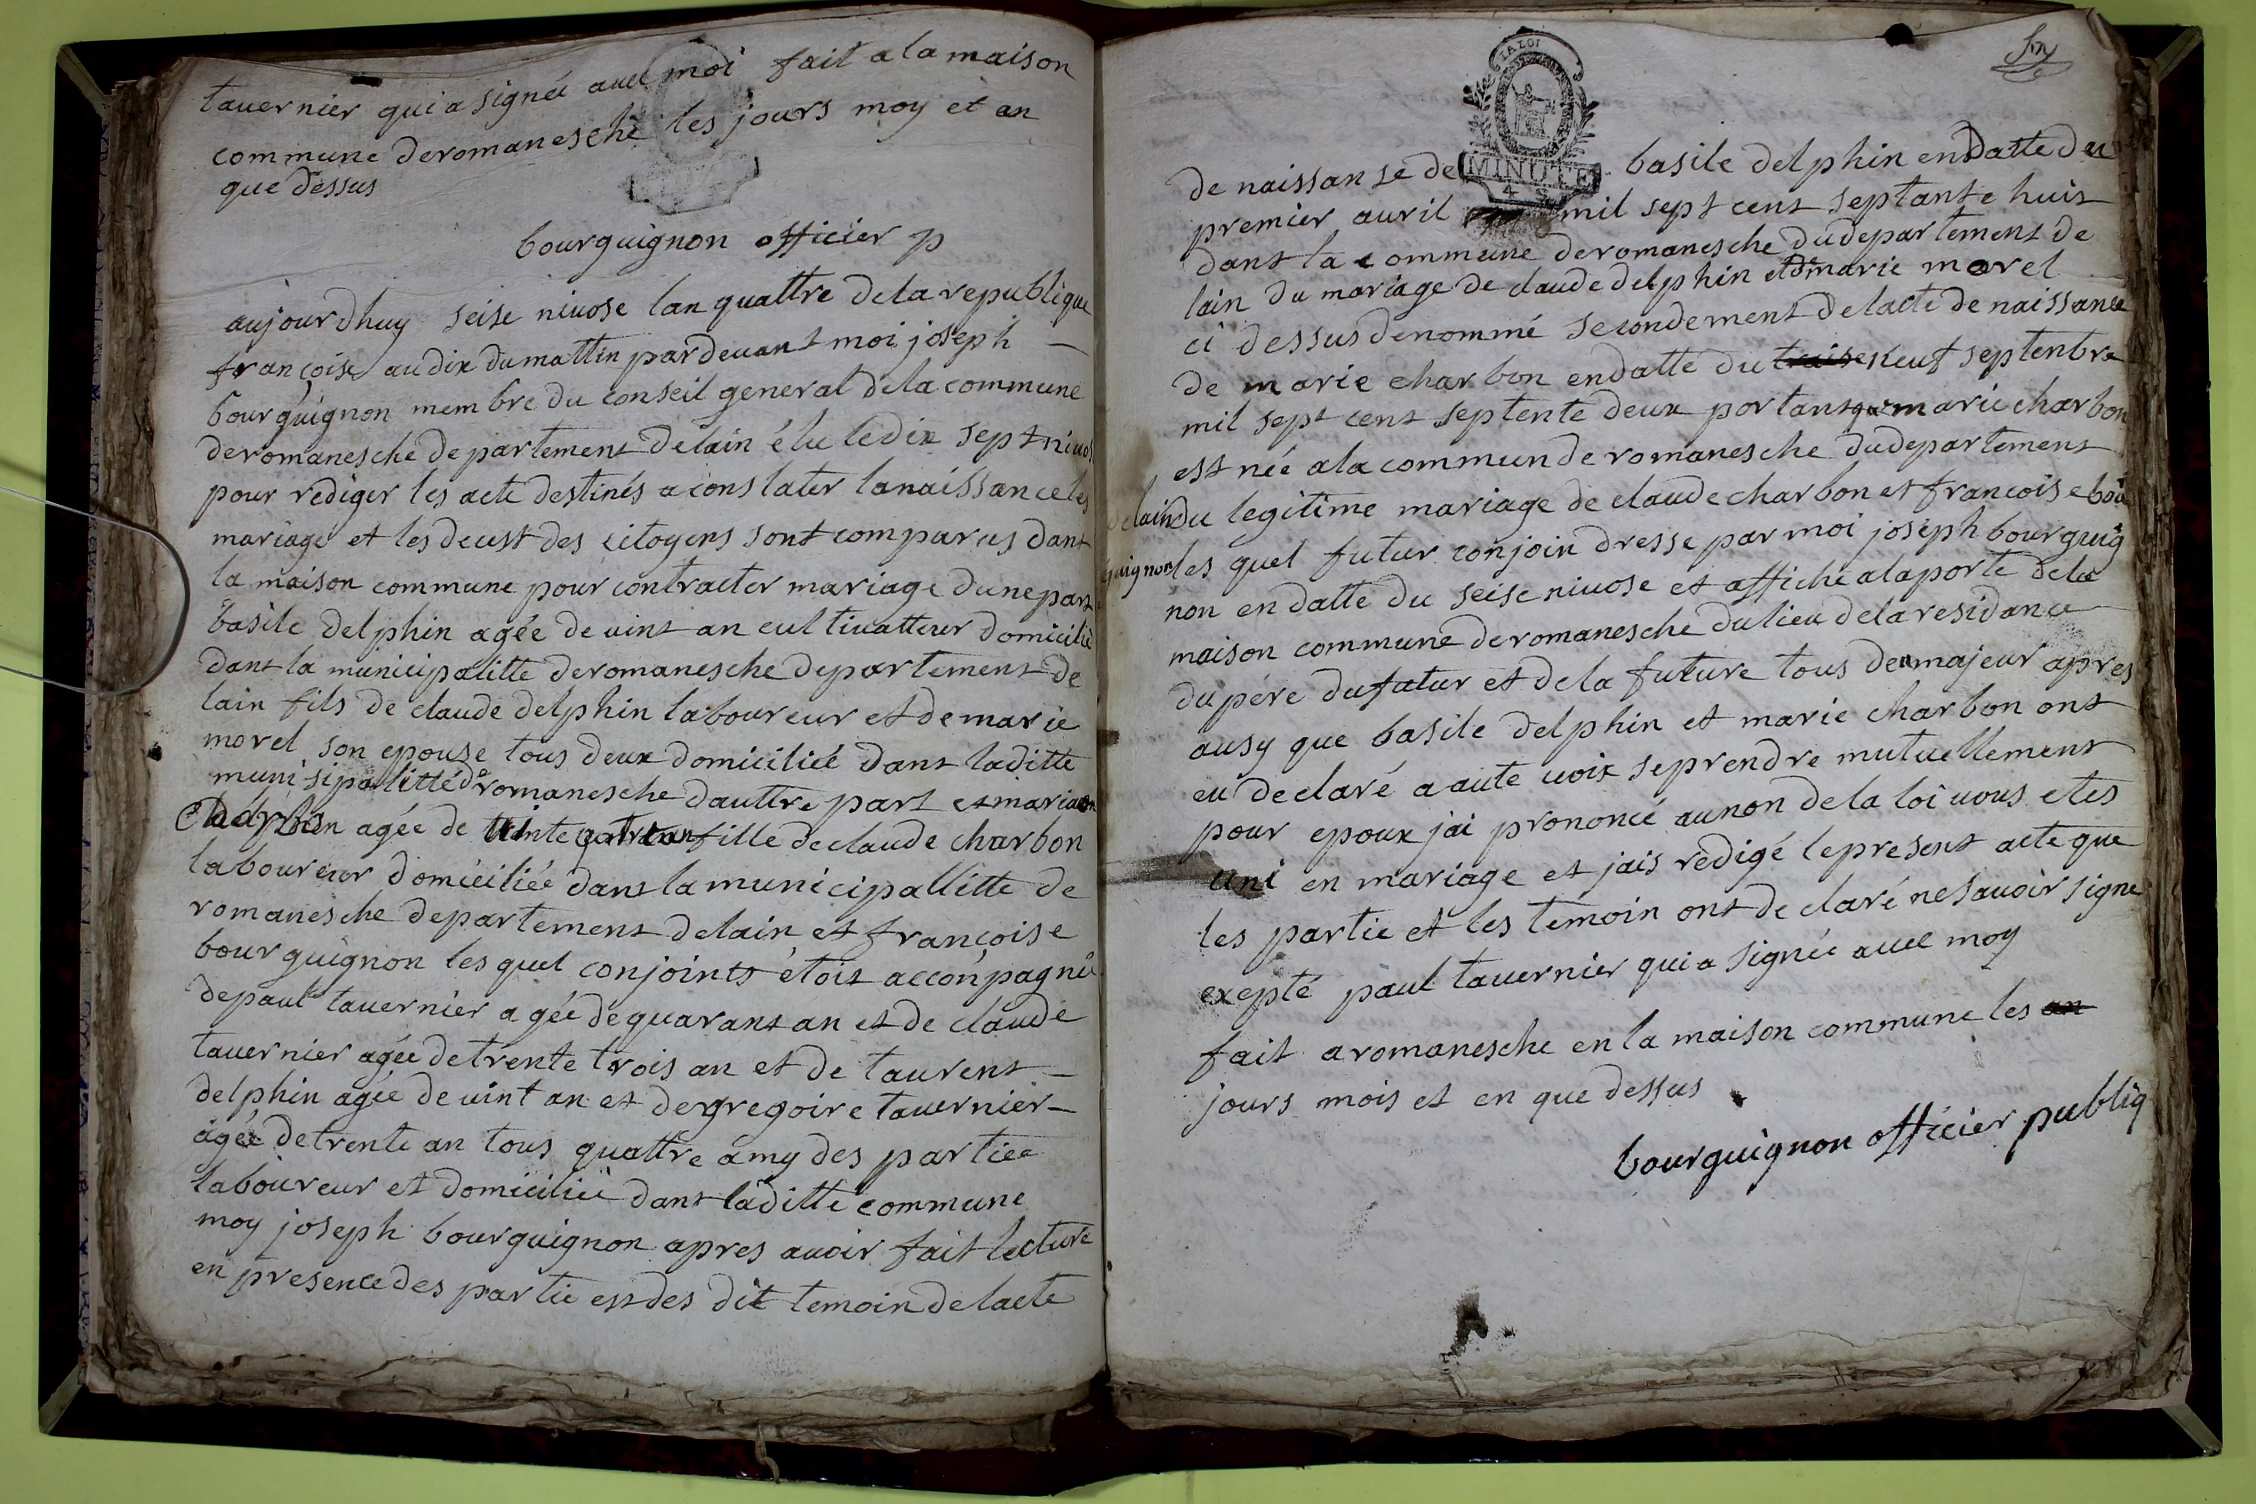 tauernier qui a signéé auel moi fait a la maison
commune deromanesche les jours moy et an
que dessus
bourguignon officier p
aujourdhuy seise niuose lan quattre dela republique
françoise au dix du mattin par deuant moi joseph
bourguignon membre du conseil general dela commune
deromanesche departement delain élu ledix sept niuos
pour rediger les acte destinés a conslater lanaissance les
mariage et les decest des citoyens sont comparus dant
la maison commune pour contracter mariage dune part
basile delphin agée de uint an cultiuatteur domicilié
dant la municipalitte deromanesche departement de
lain fils de claude delphin laboureur et de marie
morel son epouse tous deux domiciliée dant laditte
munisipalitté de romanesche dauttre part et marie
agée de fille de claude charbon
laboureur domiciliée dant la municipallitte de
romanesche departement delain et françoise
bourguignon les quel conjoints étoit acconpagnée
depaul tauernier agée de quarant an et de claude
tauernier agée de trente trois an et de laurent
delphin agée de uint an et de gregoire tauernier
agée de trente an tous quattre amy des partiee
laboureur et domiciliée dant laditte commune
moy joseph bourguignon apres auoir fait lecture
en presence des partie est des dit temoin de lacte
MINUTE
de naissanse de basile delphin en datte du
premier auril mil sept cent septante huit
dant la commune deromanesche du departement de
lain du mariage de claude delphin et de marie morel
ci dessus denommé secondement de lacte de naissance
de marie charbon en datté du neuf septenbre
mil sept cent septente deux portant que marie charbon
est née a la commun de romanesche du departement
delain du legitime mariage de claude charbon et francoise bou
guignon les quel futur conjoin dresse par moi joseph bourguig
non en datte du seise niuose et affiche a la porte dela
maison commune deromanesche du lieu de la residance
du pére du futur et de la future tous deu majeur apres
ausy que basile delphin et marie charbon ont
eu declaré a aute uoix se prendre mutuellement
pour epoux jai prononcé au non de la loi uous etes
uni en mariage et jais redigé le present acte que
les partie et les témoin ont declaré ne sauoir signe
exepté paul tauernier qui a signée auel moy
fait a romanesche en la maison commune les an
jours mois et en que dessus
bourguignon officier publiq